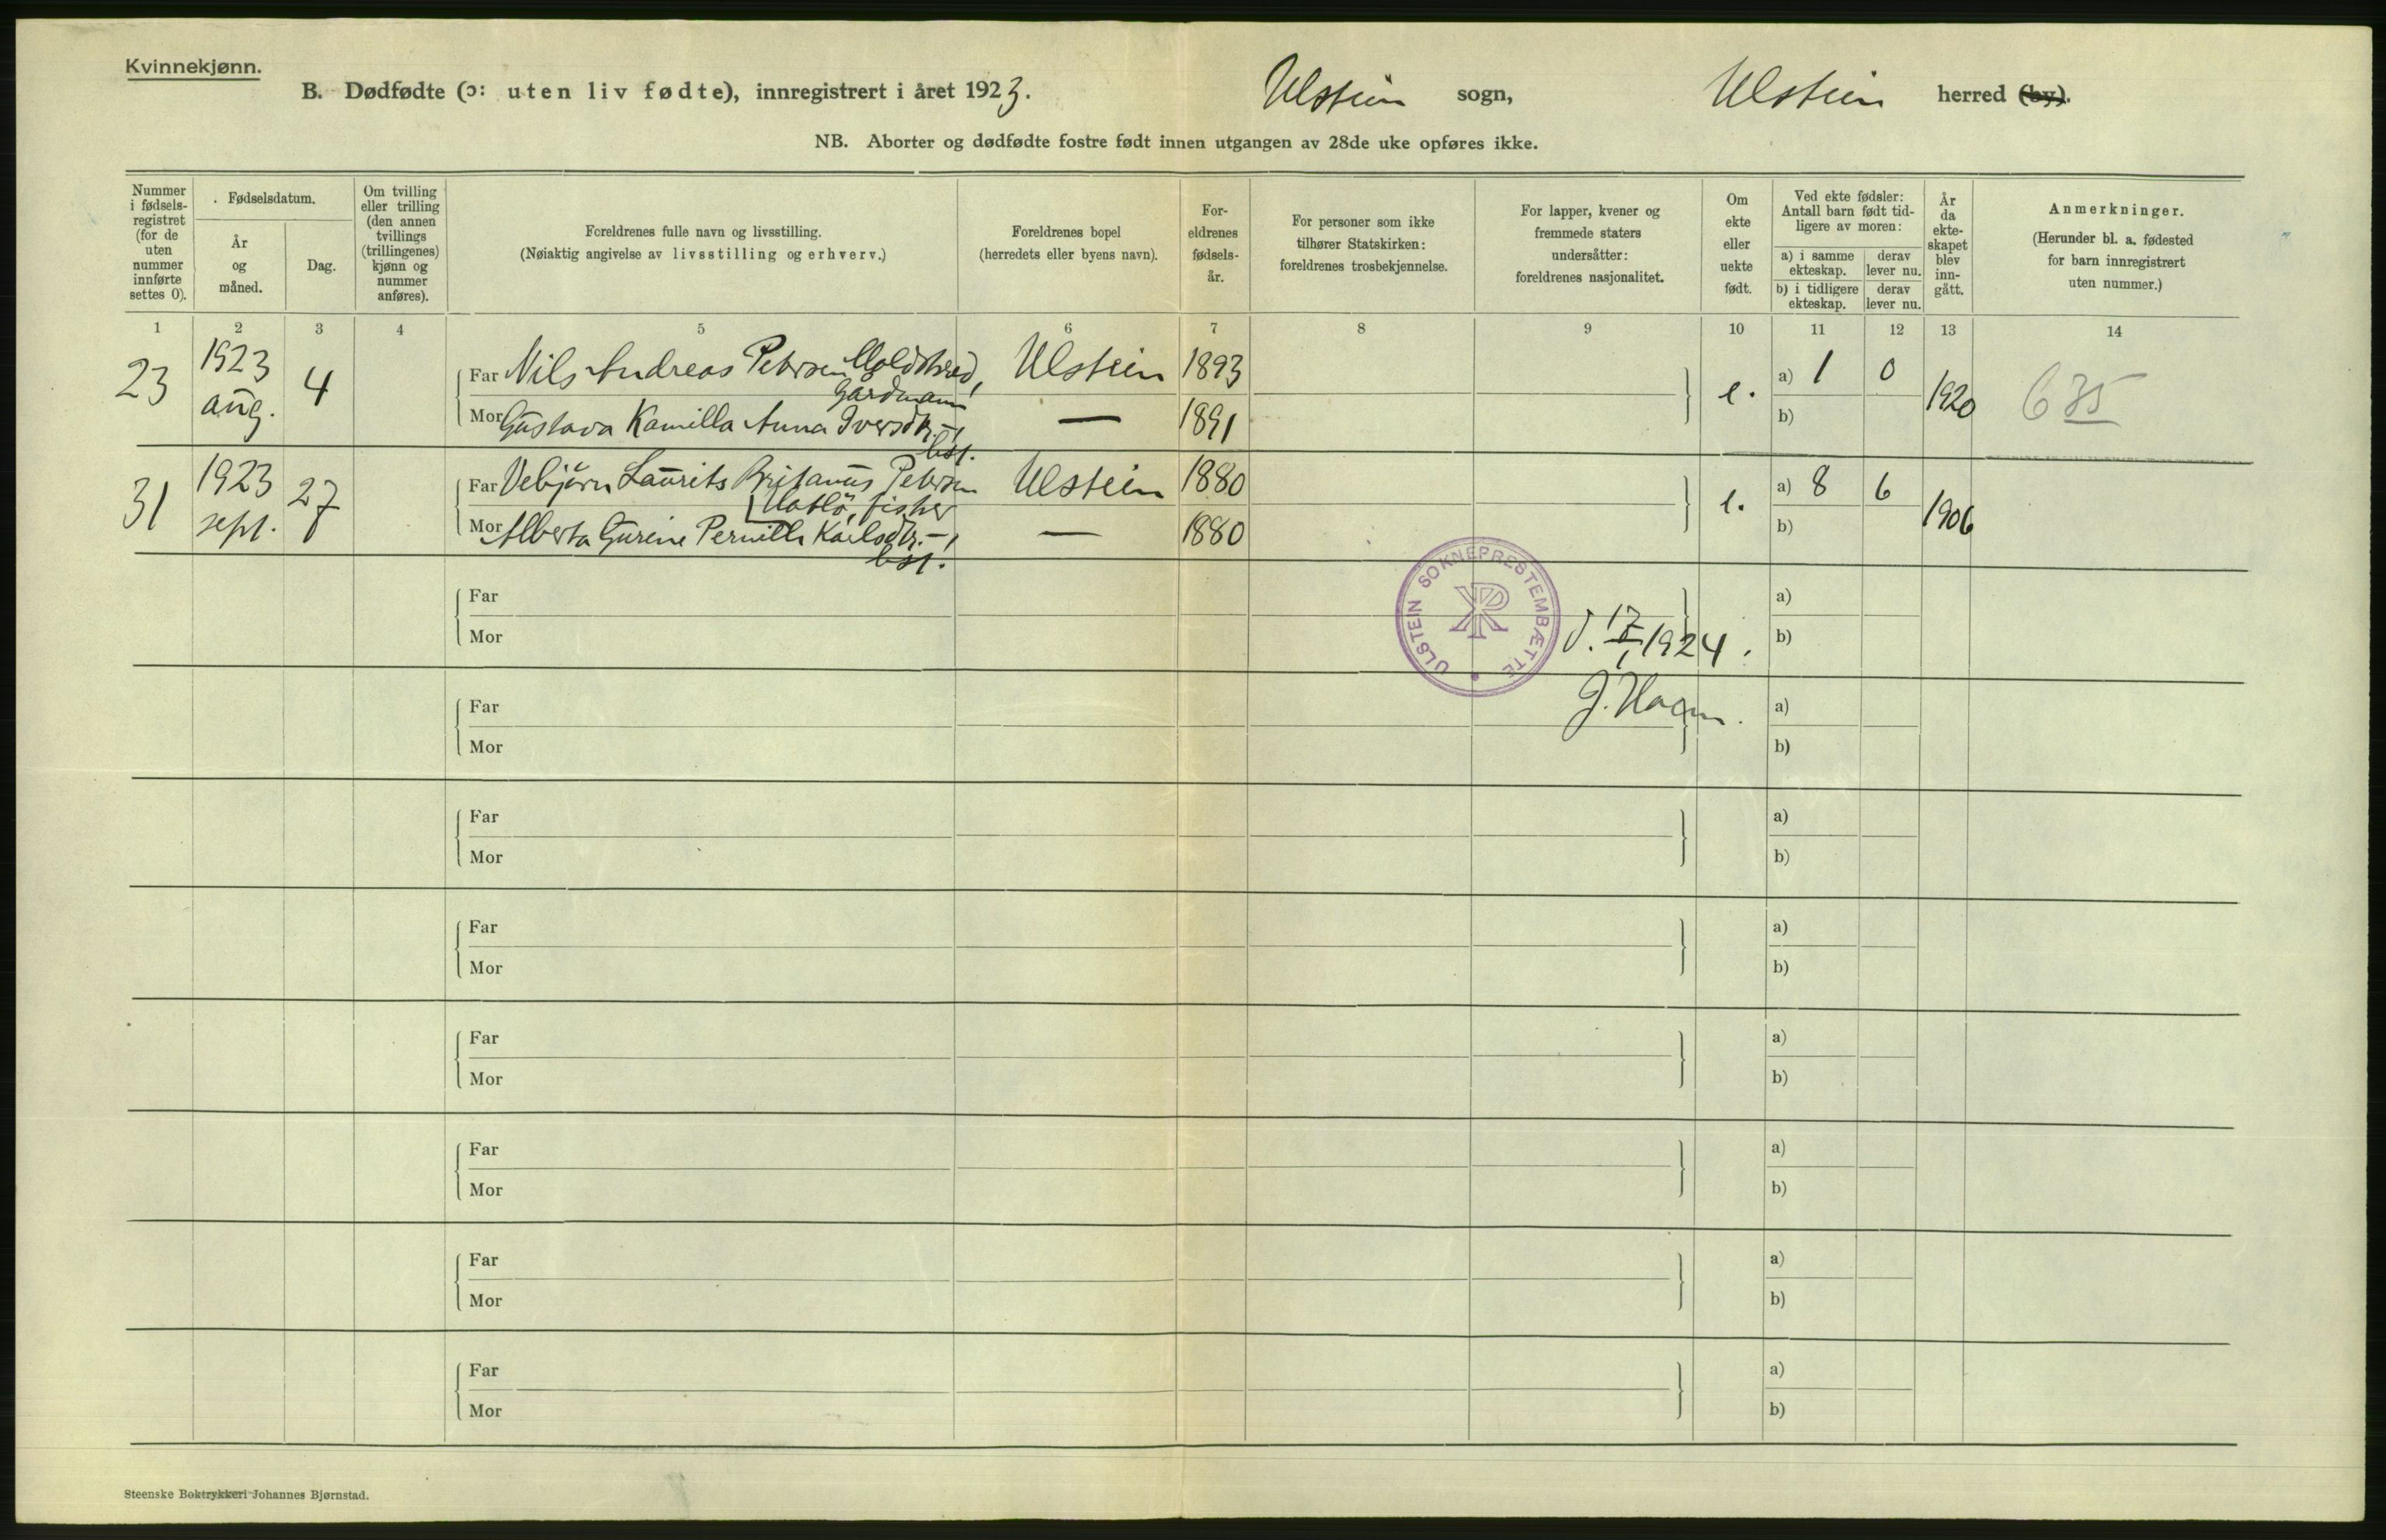 Kvinnekjønn.
B. Dødfødte (ɔ: uten liv fødte), innregistrert i året 1923. Ulstein sogn, Ulstein herred (by).
NB. Aborter og dødfødte fostre født innen utgangen av 28de uke opføres ikke.
Nummer i fødsels-registret (for de uten nummer innførte settes 0).
Fødselsdatum.
År og måned.
Dag.
Om tvilling eller trilling (den annen tvillings (trillingenes) kjønn og nummer anføres).
Foreldrenes fulle navn og livsstilling.
(Nøiaktig angivelse av livsstilling og erhverv.)
Foreldrenes bopel
(herredets eller byens navn).
For-eldrenes fødsels-år.
For personer som ikke tilhører Statskirken: foreldrenes trosbekjennelse.
For lapper, kvener og fremmede staters undersåtter: foreldrenes nasjonalitet.
Om ekte eller uekte født.
Ved ekte fødsler: Antall barn født tid-ligere av moren:
a) i samme ekteskap.
derav lever nu.
b) i tidligere ekteskap.
derav lever nu.
År da ekte-skapet blev inn-gått.
Anmerkninger.
(Herunder bl. a. fødested for barn innregistrert uten nummer.)
1 2 3 4 5 6 7 8 9 10 11 12 13 14
23 1923 aug. 4
Far Nils Andreas Petersen Ulstein 1893 e. a) 1 0 1920 635
Gardmann
Mor Gustava Kamilla Anna Iversdtr. — 1891 b)
31 1923 sept. 27
Far Vebjørn Laurits Petersen Ulstein 1880 e. a) 8 6 1906
Hatlö, fisker
Mor Alberta Gurine Pernille Karlsdtr. — 1880 b)
Far a)
Mor b)
ULSTEIN SOKNEPRESTEMBÆTTE
1924.
Far a)
J.
Mor b)
Far a)
Mor b)
Far a)
Mor b)
Far a)
Mor b)
Far a)
Mor b)
Far a)
Mor b)
Far a)
Mor b)
Steenske Boktrykkeri Johannes Bjørnstad.